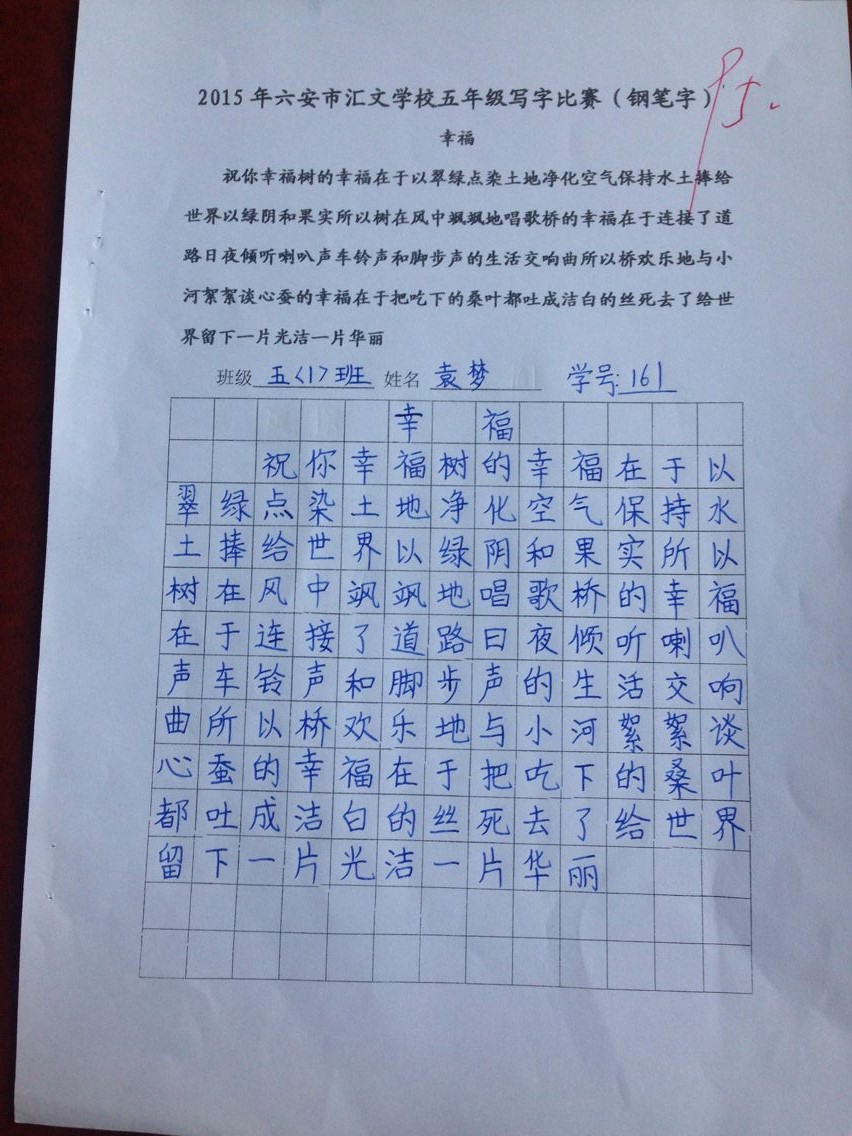 2015年六安市汇文学校五年级写字比赛（钢笔字）
幸福
祝你幸福树的幸福在于以翠绿点染土地净化空气保持水土捧给
世界以绿阴和果实所以树在风中飒飒地唱歌桥的幸福在于连接了道
路日夜倾听喇叭声车铃声和脚步声的生活交响曲所以桥欢乐地与小
河絮絮谈心蚕的幸福在于把吃下的桑叶都吐成洁白的丝死去了给世
界留下一片光洁一片华丽
班级 五<1>班 姓名 袁梦 学号:161
幸福
祝你幸福树的幸福在于以
翠绿点染土地净化空气保持水
土捧给世界以绿阴和果实所以
树在风中飒飒地唱歌桥的幸福
在于连接了道路日夜倾听喇叭
声车铃声和脚步声的生活交响
曲所以桥欢乐地与小河絮絮谈
心蚕的幸福在于把吃下的桑叶
都吐成洁白的丝死去了给世界
留下一片光洁一片华丽